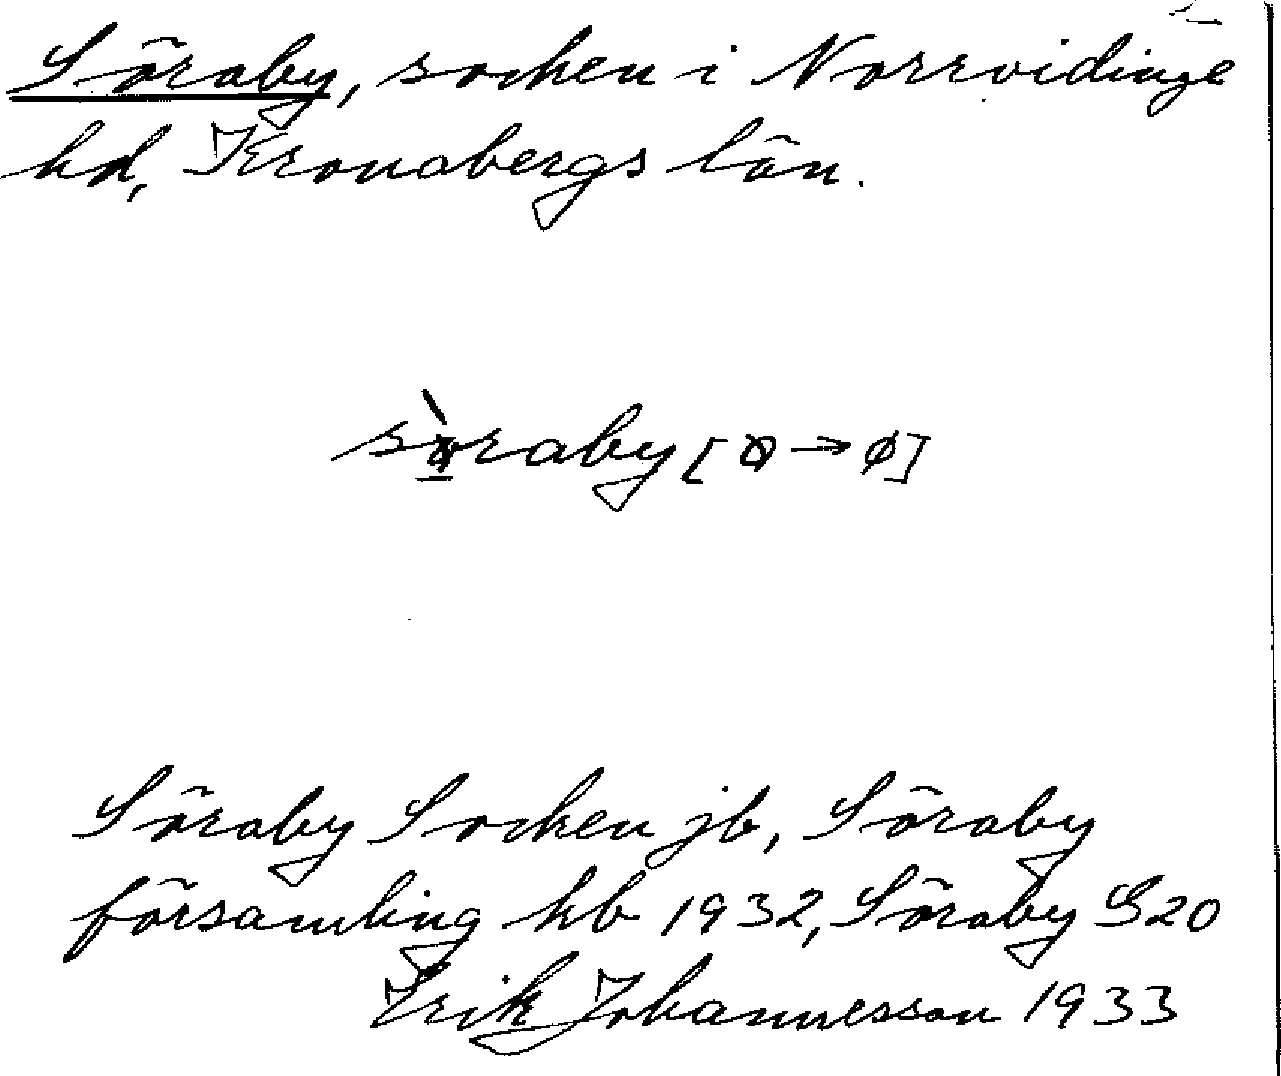 Söraby, socken i Norrvidinge
hd, Kronobergs län.
söraby [ø → ø]
Söraby Socken jb, Söraby
församling kb 1932, Söraby G20
Erik Johannesson 1933